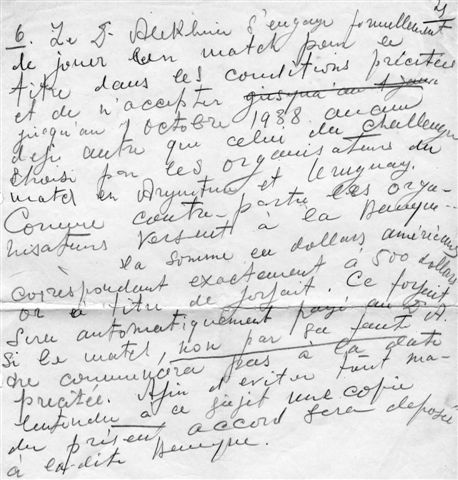 4
6. Le Dr Alekhine s'engage formellement
de jouer son match pour le
titre dans les conditions précitées
et de n'accepter jusqu'au 1
jusqu'au 1 octobre 1938 aucun
defi autre que celui du challenger
choisi par les organisateurs du
match en Argentine et Uruguay.
Comme contre-partie les orga-
nisateurs versent à la Banque
la somme en dollars américains
correspondant exactement à 500 dollars
or à titre de forfait. Ce forfait
sera automatiquement payé au Dr A.
si le match, non par sa faute
ne commencera pas à la date
precitée. Afin d'eviter tout ma-
lentendu à ce sujet une copie
du présent accord sera deposée
à la-dite Banque.